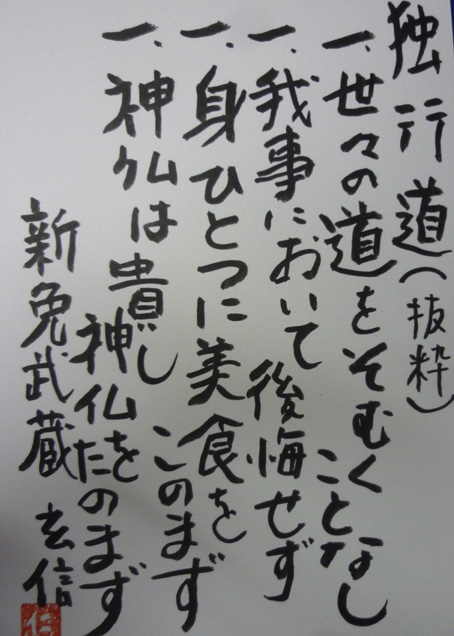 独行道（抜粋）
一、世々の道をそむくことなし
一、我事において後悔せず
一、身ひとつに美食をこのまず
一、神仏は貴し神仏をたのまず
新免武蔵玄信
仁